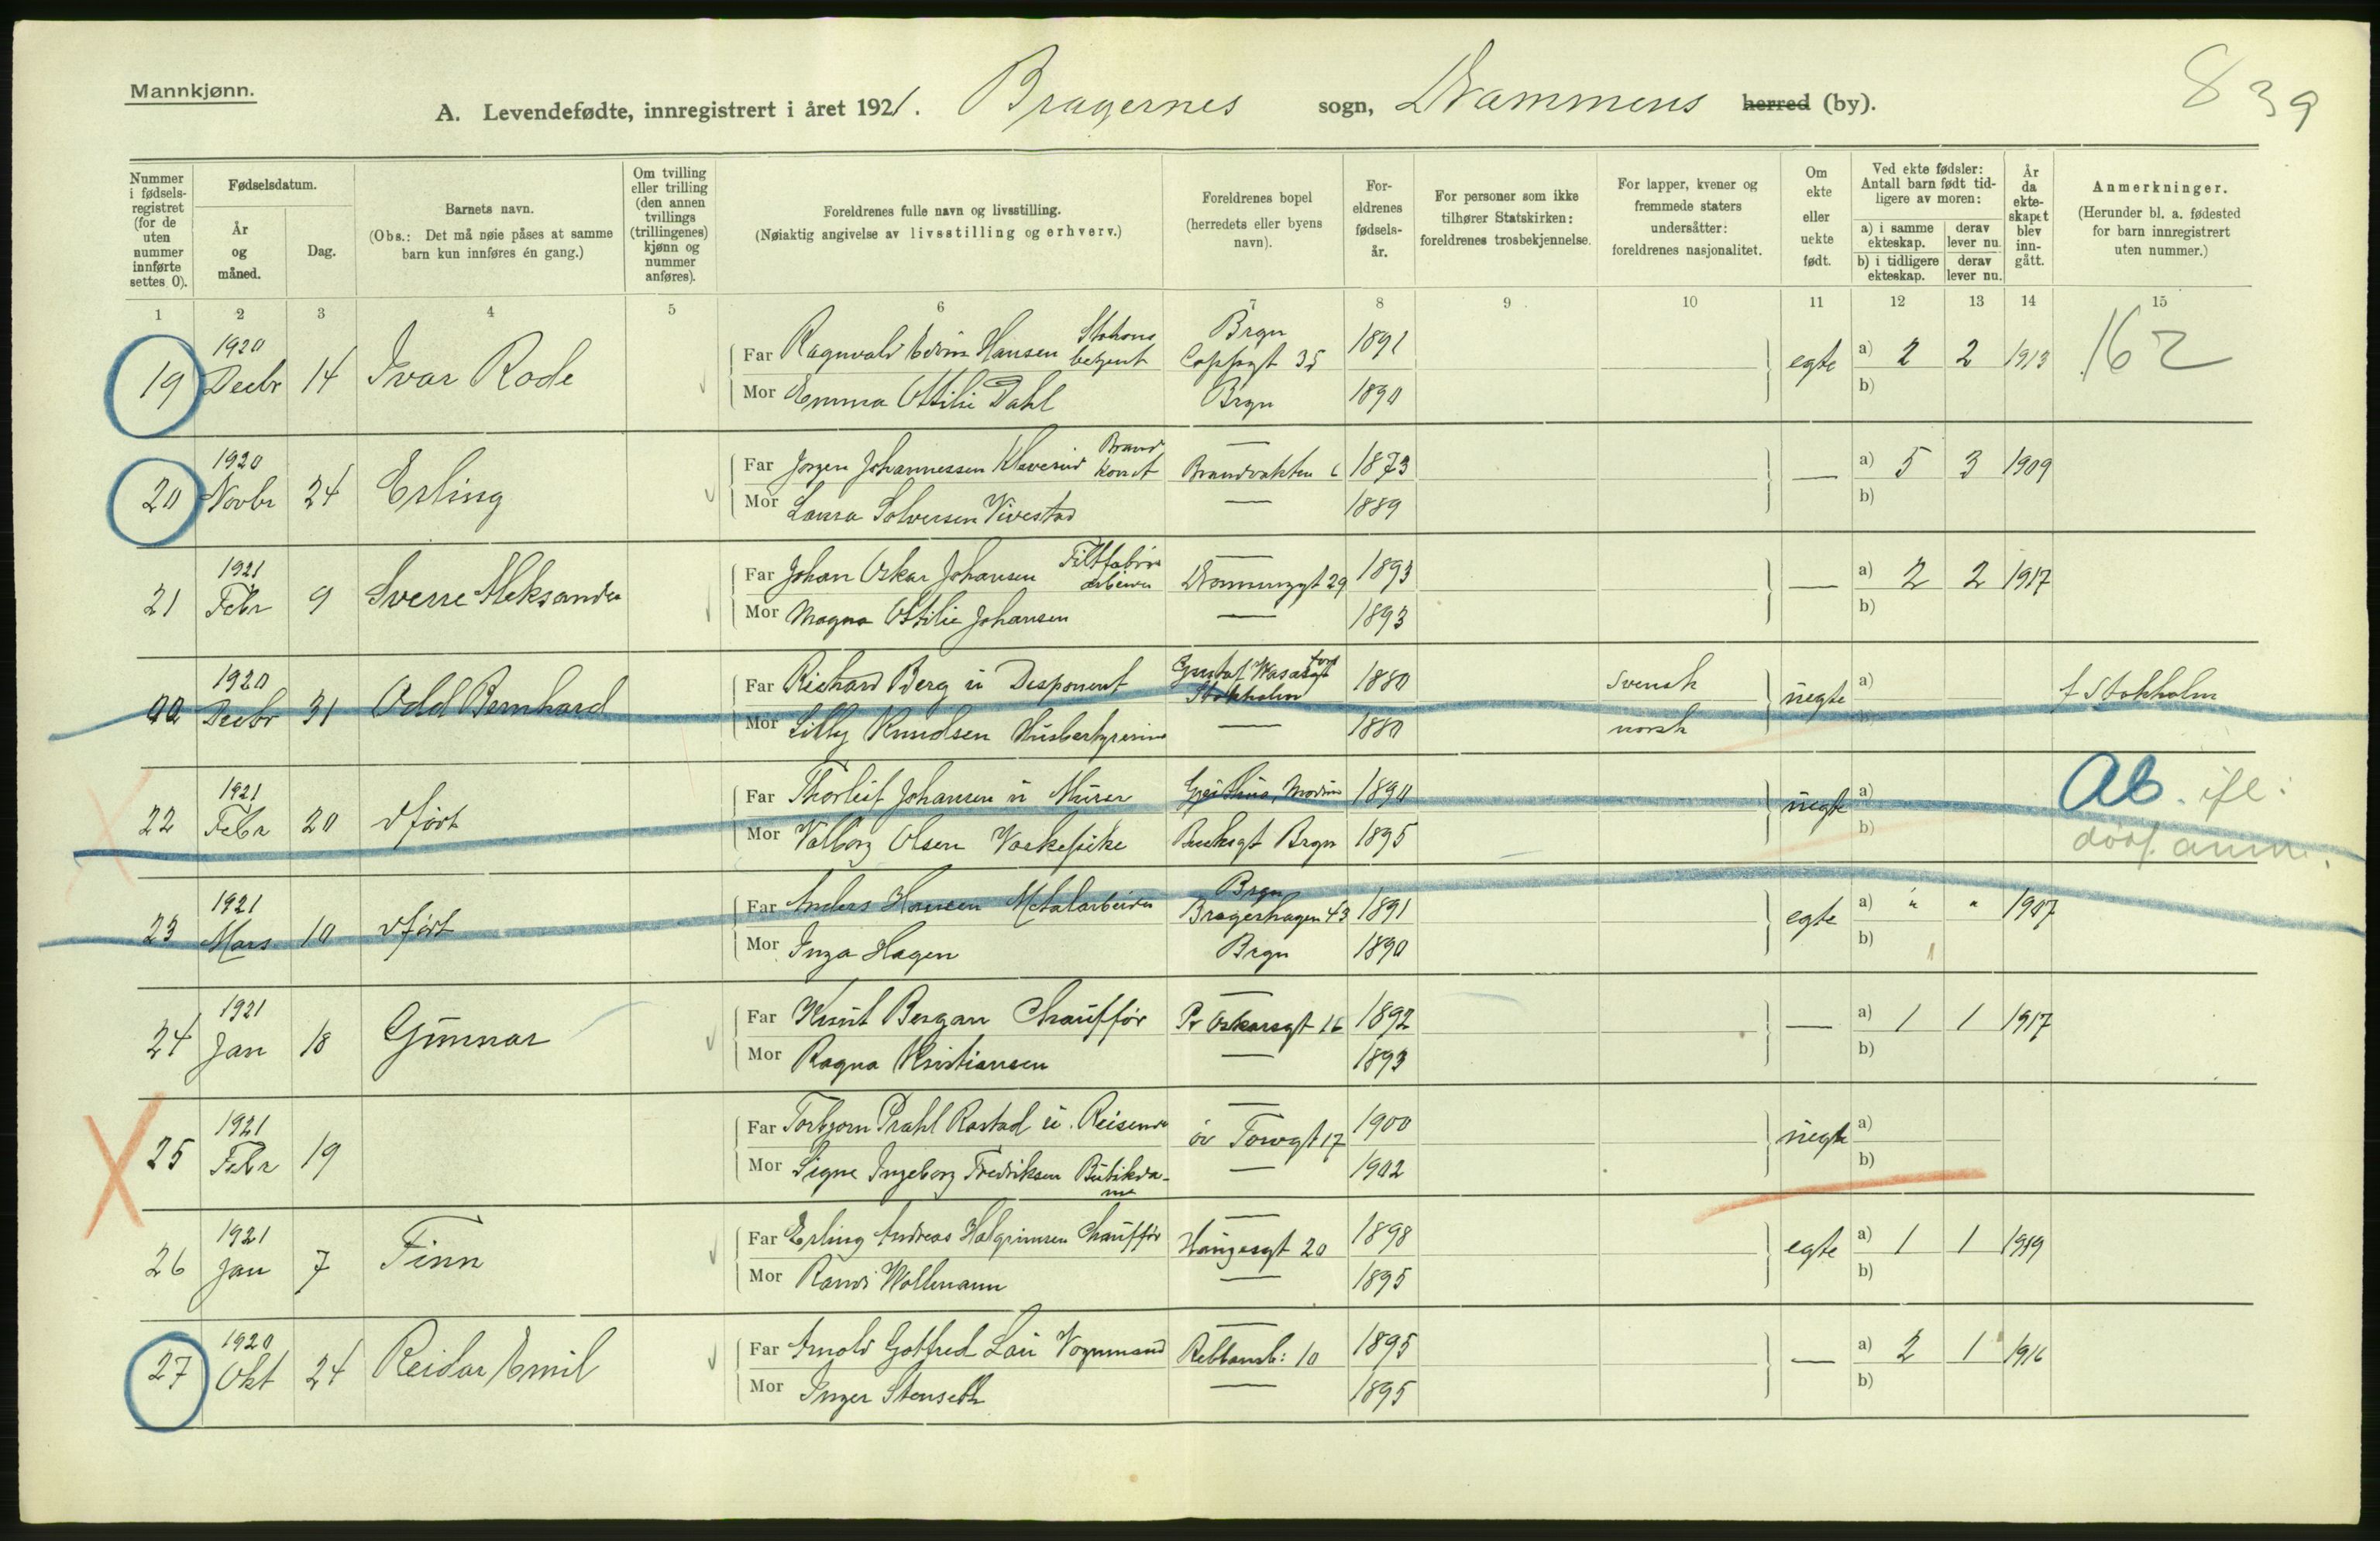 Mannkjønn.
839
A. Levendefødte, innregistrert i året 1921. Bragernes sogn, Drammens herred (by).
Nummer i fødsels-registret (for de uten nummer innførte settes 0).
Fødselsdatum.
År og måned.
Dag.
Barnets navn.
(Obs.: Det må nøie påses at samme barn kun innføres én gang.)
Om tvilling eller trilling (den annen tvillings (trillingenes) kjønn og nummer anføres).
Foreldrenes fulle navn og livsstilling.
(Nøiaktig angivelse av livsstilling og erhverv.)
Foreldrenes bopel
(herredets eller byens navn).
For-eldrenes fødsels-år.
For personer som ikke tilhører Statskirken: foreldrenes trosbekjennelse.
For lapper, kvener og fremmede staters undersåtter: foreldrenes nasjonalitet.
Om ekte eller uekte født.
Ved ekte fødsler: Antall barn født tid-ligere av moren:
a) i samme ekteskap.
derav lever nu.
b) i tidligere ekteskap.
derav lever nu.
År da ekte-skapet blev inn-gått.
Anmerkninger.
(Herunder bl. a. fødested for barn innregistrert uten nummer.)
1 2 3 4 5 6 7 8 9 10 11 12 13 14 15
19 1920 Decbr 14 Ivar Rode
Far Ragnvald Edvin Hansen Stations betjent Brgn Cappsgt 35 1891
Mor Emma Ottilie Dahl Brgn 1890
egte a) 2 2 1913 162
b)
20 1920 Novbr 24 Erling
Far Jørgen Johannessen Klaverud Brand konst Brandvakten 6 1873
Mor Laura Solversen Vivestad — 1889
— a) 5 3 1909
b)
21 1921 Febr 9 Sverre Aleksander
Far Johan Oskar Johansen Filtfabrik arbeider — Drammensgt 29 1893
Mor Magna Ottilie Johansen — 1893
— a) 2 2 1917
b)
1920 Decbr 31 Odd Bernhard
Far Richard Berg u Disponent Gustaf Wasasgt Stokholm 1880 svensk
Mor Lilly Knudsen Husbestyrerinne — 1880 norsk
uegte a) f Stokholm
b)
22 1921 Febr 20 dført
Far Thorleif Johansen u Murer Modum 1890
Mor Valborg Olsen Vaskepike Brgn 1895
uegte a) Ab. ifl:
b) døpf. anm.
23 1921 Mars 10 dført
Far Anders Hansen Metalarbeider Brgn Bragerhagen 43 1891
Mor Inga Hagen Brgn 1890
egte a) " " 1907
b) 1
24 1921 Jan 18 Gunnar
Far Knut Bergan Chauffør — Pr Oskarsgt 16 1892
Mor Ragna Kristiansen — 1893
— a) 1 1 1917
b)
25 1921 Febr 19
Far Torbjørn Prahl Rastad u. Reisende — øv Torvgt 17 1900
Mor Signe Ingeborg Fredriksen Butikdame — 1902
uegte a)
b)
26 1921 Jan 7 Finn
Far Erling Andreas Halgrimsen Chauffør — Haugesgt 20 1898
Mor Randi Wollmann — 1895
egte a) 1 1 1919
b)
27 1920 Okt 24 Reidar Emil
Far Arnold Gotfred Lau Vognmand — Rebbansb: 10 1895
Mor Inger Stenseth — 1895
— a) 2 1 1916
b)